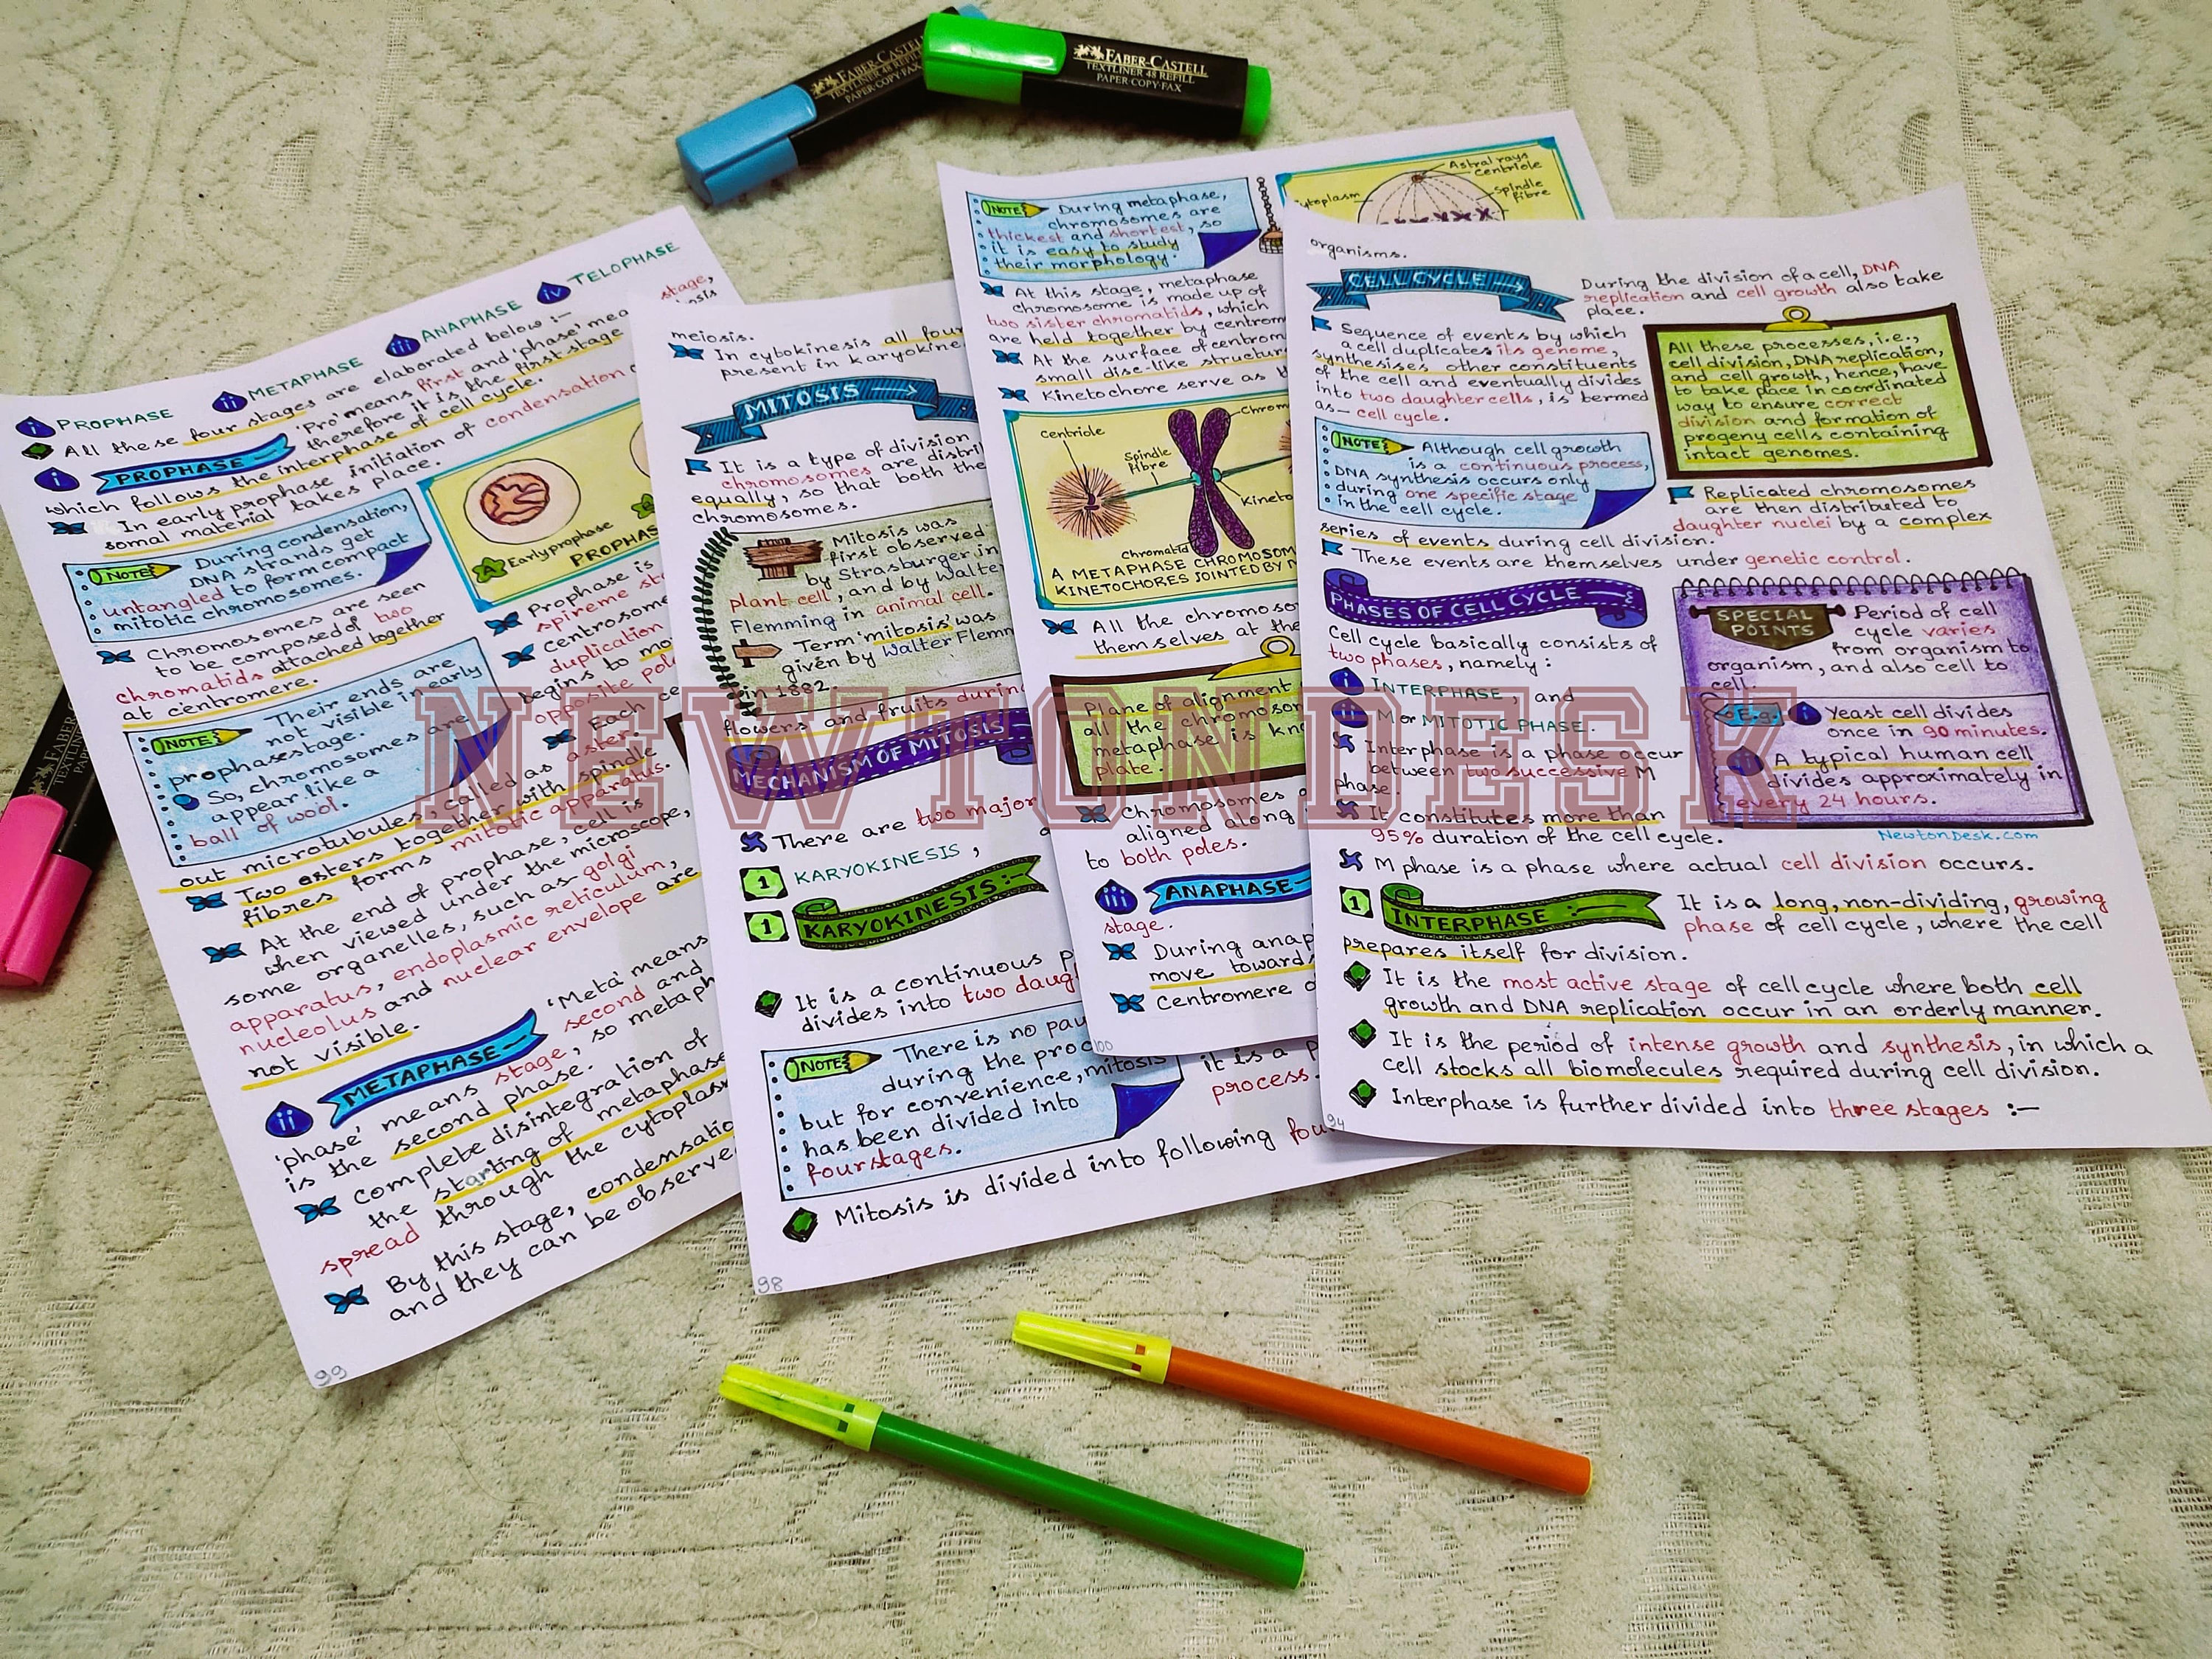 FABER-CASTELL
TEXTLINER 48 REFILL
PAPER·COPY·FAX
FABER-CASTELL
TEXTLINER 48 REFILL
PAPER·COPY·FAX
NEWTONDESK
i PROPHASE ii METAPHASE iii ANAPHASE iv TELOPHASE
All these four stages are elaborated below :-
i PROPHASE 'Pro' means first and 'phase' mea
therefore it is the first stage
which follows the interphase of cell cycle.
In early prophase initiation of condensation
somal material takes place.
NOTE During condensation,
DNA strands get
untangled to form compact
mitotic chromosomes.
A Early prophase
PROPHAS
Chromosomes are seen
to be composed of two
chromatids attached together
at centromere.
NOTE Their ends are
not visible in early
prophase stage.
So, chromosomes are
appear like a
ball of wool.
Prophase is
spireme sta
Centrosome
duplication
begins to mov
opposite pol
Each ce
out microtubules, called as aster.
Two asters together with spindle
fibres forms mitotic apparatus.
At the end of prophase, cell is
when viewed under the microscope,
some organelles, such as- golgi
apparatus, endoplasmic reticulum,
nucleolus and nuclear envelope are
not visible.
ii METAPHASE 'Meta' means
second and
'phase' means stage, so metaph
is the second phase.
Complete disintegration of
the starting of metaphase
spread through the cytoplasm
By this stage, condensatio
and they can be observe
99
stage,
meiosis.
In cytokinesis all four
present in karyokine
MITOSIS
It is a type of division
chromosomes are distri
equally, so that both the
chromosomes.
Mitosis was
first observed
by Strasburger in
plant cell, and by Walter
Flemming in animal cell.
Term 'mitosis' was
given by Walter Flemm
in 1882.
flowers and fruits during
MECHANISM OF MITOSIS
There are two major
1 KARYOKINESIS,
1 KARYOKINESIS:-
It is a continuous p
divides into two daug
NOTE There is no pau
during the proc
but for convenience, mitosis
has been divided into
four stages.
it is a p
process.
Mitosis is divided into following fou
98
NOTE During metaphase,
chromosomes are
thickest and shortest, so
it is easy to study
their morphology.
Astral rays
Centriole
Cytoplasm
Spindle
fibre
At this stage, metaphase
chromosome is made up of
two sister chromatids, which
are held together by centrom
At the surface of centrom
small disc-like structur
Kinetochore serve as
Centriole
Spindle
fibre
Chrom
Kineto
Chromatid
A METAPHASE CHROMOSOM
KINETOCHORES JOINTED BY M
All the chromoso
themselves at the
Plane of alignment
all the chromosom
metaphase is kno
plate.
Chromosomes a
aligned along
to both poles.
iii ANAPHASE
stage.
During anap
move toward
Centromere
100
organisms.
CELL CYCLE
During the division of a cell, DNA
replication and cell growth also take
place.
Sequence of events by which
a cell duplicates its genome,
synthesises other constituents
of the cell and eventually divides
into two daughter cells, is termed
as- cell cycle.
All these processes, i.e.,
cell division, DNA replication,
and cell growth, hence, have
to take place in coordinated
way to ensure correct
division and formation of
progeny cells containing
intact genomes.
NOTE Although cell growth
is a continuous process,
DNA synthesis occurs only
during one specific stage
in the cell cycle.
Replicated chromosomes
are then distributed to
daughter nuclei by a complex
series of events during cell division.
These events are themselves under genetic control.
PHASES OF CELL CYCLE
Cell cycle basically consists of
two phases, namely :
i INTERPHASE, and
ii M or MITOTIC PHASE.
Interphase is a phase occur
between two successive M
phase.
It constitutes more than
95% duration of the cell cycle.
SPECIAL POINTS
Period of cell
cycle varies
from organism to
organism, and also cell to
cell.
E.g. i Yeast cell divides
once in 90 minutes.
ii A typical human cell
divides approximately in
every 24 hours.
NewtonDesk.com
M phase is a phase where actual cell division occurs.
1 INTERPHASE :- It is a long, non-dividing, growing
phase of cell cycle, where the cell
prepares itself for division.
It is the most active stage of cell cycle where both cell
growth and DNA replication occur in an orderly manner.
It is the period of intense growth and synthesis, in which a
cell stocks all biomolecules required during cell division.
Interphase is further divided into three stages :-
94